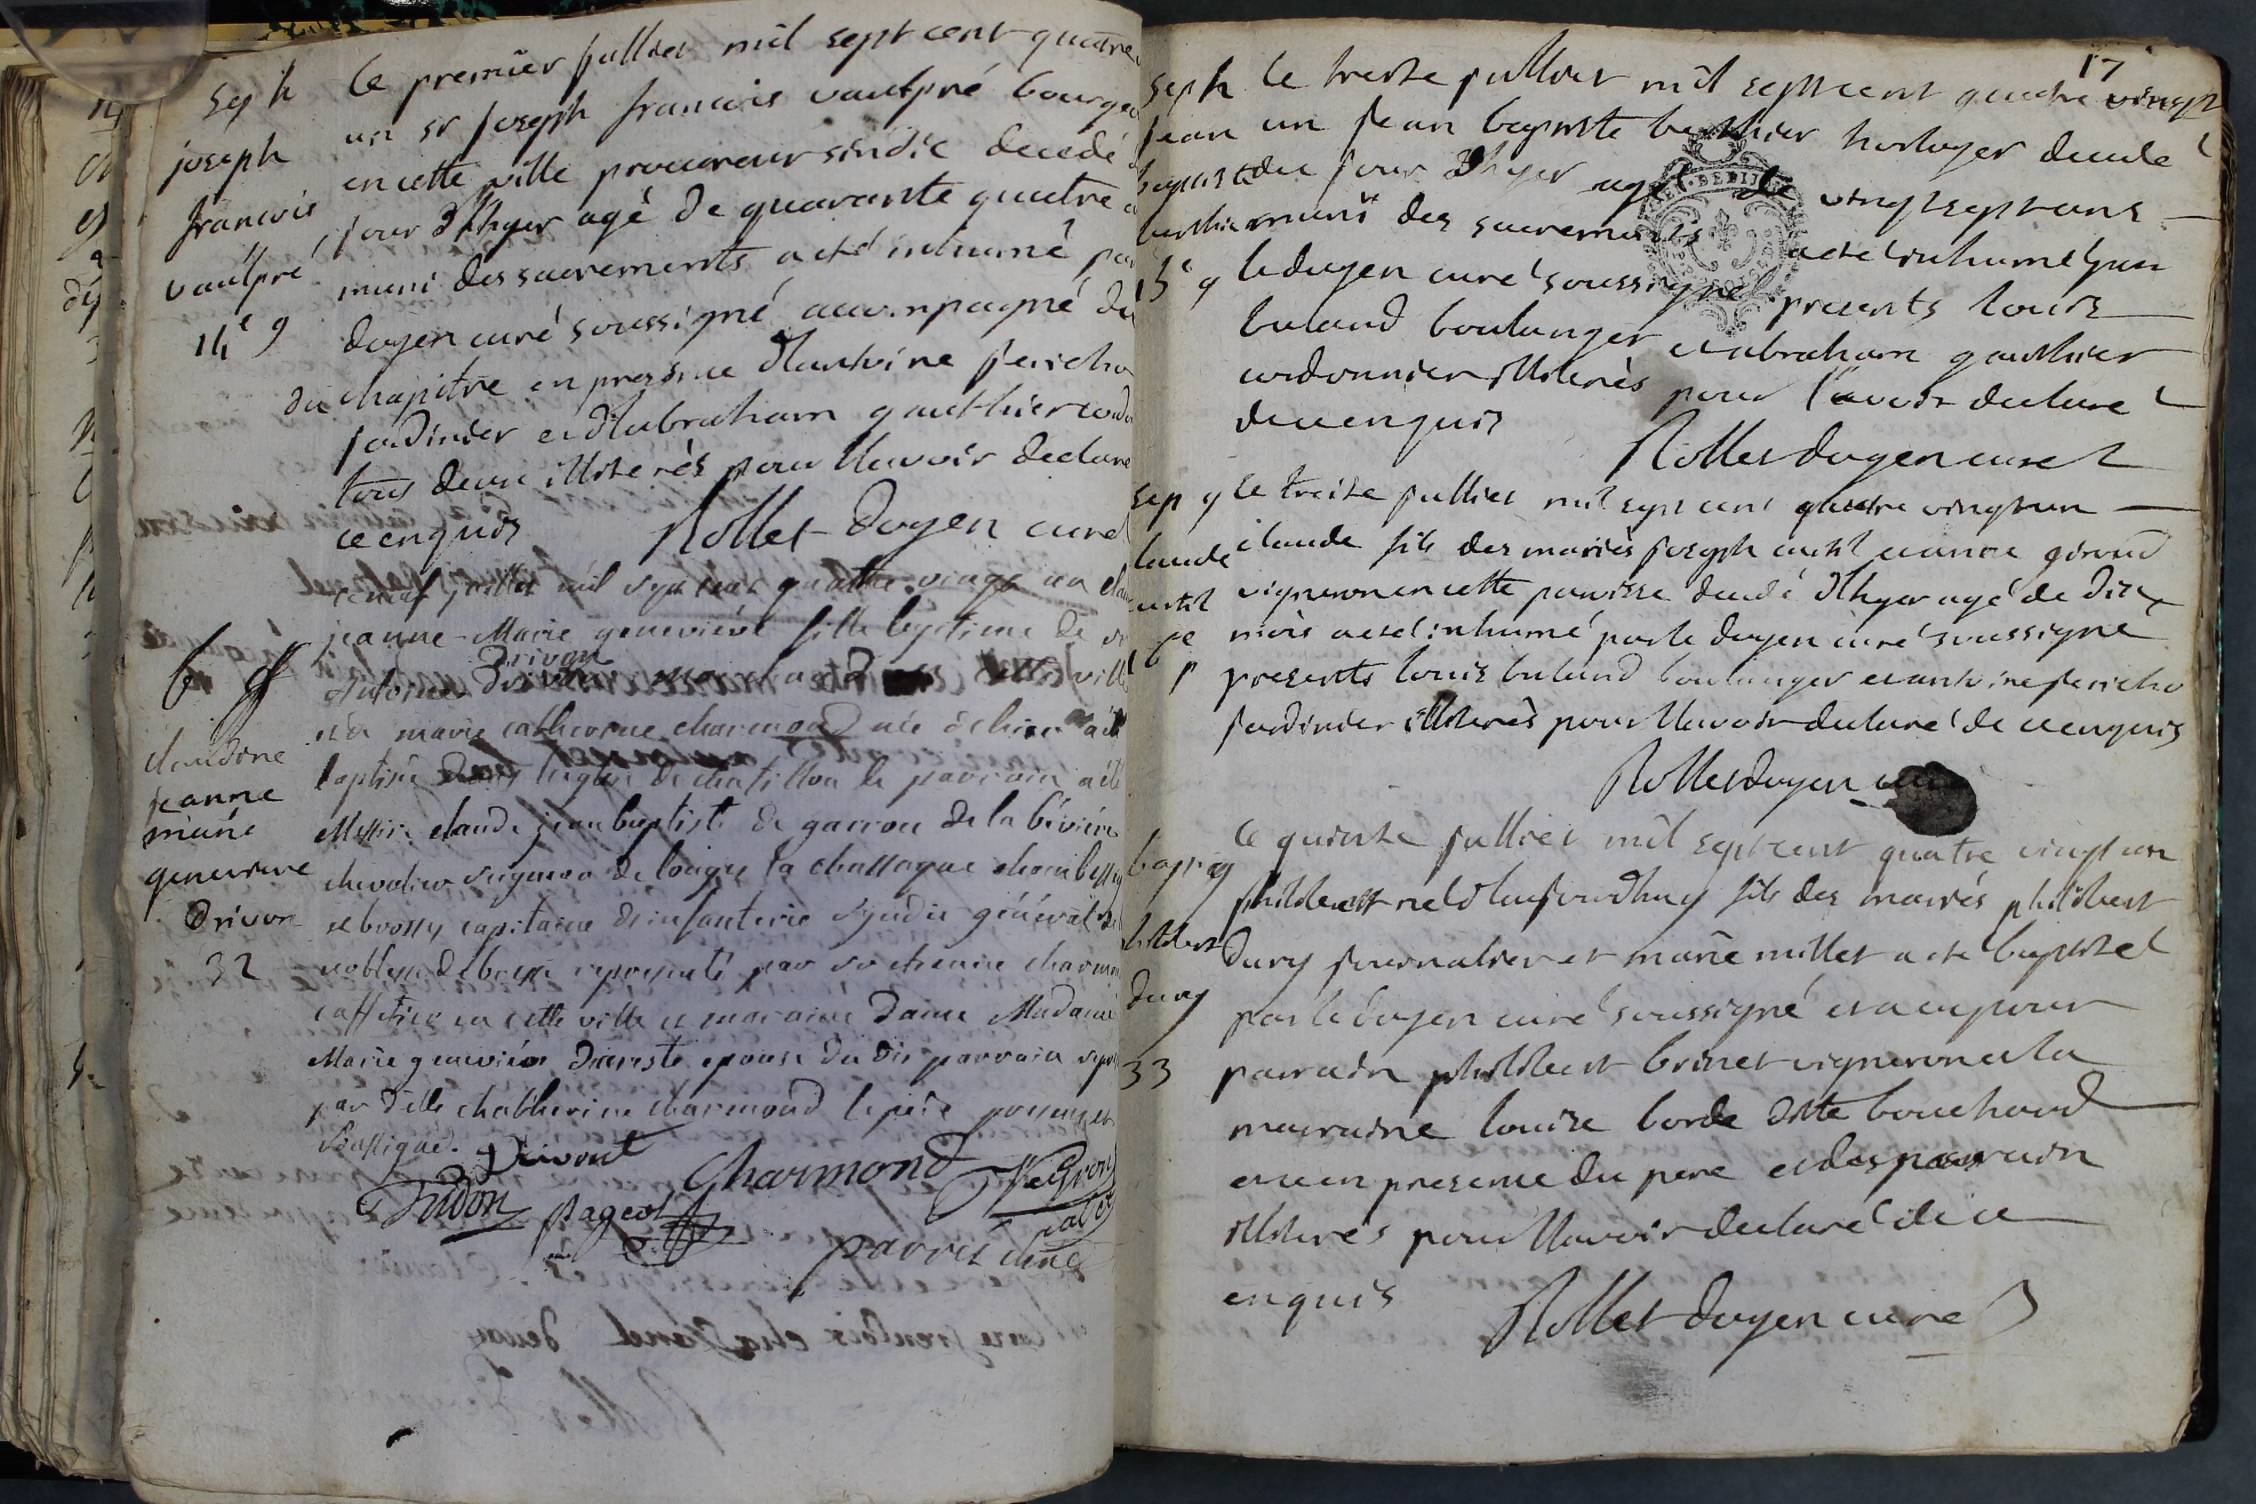 sep h
joseph
francois
vaulpré
14e g
le premier jullier mil sept cent quatre
un sr joseph francois vaulpré bourge
en cette ville procureur sindic decedé
jour d'hyer agé de quarante quatre
muni des sacrements a eté inhumé par
doyen curé soussigné accompagné du
du chapitre en presence d'antoine jericho
jardinier et d'abraham gauthier cordo
tous deux illiterés pour l'lavoir declaré
ce enquis
Rollet doyen curé
b ff
claudine
jeanne
marie
genevieve
drivon
32
le neuf juillet mil sept cent quatre vingt un clau
jeanne-Marie genevieve fille legitime de sr
antoine drivon marchand cette ville
et de marie catherine charmond née d'hier a été
baptisée dans l'eglise de chatillon le parrain a été
Messire claude jean baptiste de garron de la bévière
chevalier seigneur de longes la chassagne
capitaine d'infanterie syndic général de
noblesse de bresse representé par sr etienne charmon
caffetier en cette ville et maraine dame Madame
Marie genevieve epouse du dit parrain repr
par delle chatherine charmond le père present et
soussigné. Drivont
Tridon pageot Charmond
parret curé
17
sep h
jean
baptiste
berthier
5e g
le treize jullier mil sept cent quatre vingt
un jean baptiste berthier horloger decedé
du jour d'hyer agé de vingt sept ans
muni des sacrements a eté inhumé par
le doyen curé soussigné presents louis
buland boulanger et abraham gauthier
cordonnier illiterés pour l'avoir declaré
de ce enquis
Rollet doyen curé
sep g
claude
cutil
6e
le treize jullier mil sept cent quatre vingt un
claude fils des mariés joseph cutil et anne giroud
vigneron en cette paroisse decedé d'hyer agé de dix
mois a eté inhumé par le doyen curé soussigné
presents louis buland boulanger et antoine jericho
jardinier illiterés pour l'lavoir declaré de ce enquis
Rollet doyen curé
bap g
philibert
dury
33
le quinze jullier mil sept cent quatre vingt un
philibert né d'aujourdhuy fils des mariés philibert
dury journalier et marie millet a eté baptisé
par le doyen curé soussigné et a eu pour
parrain philibert brinet vigneron et la
marraine louise borde ditte bouchard
et ce en presence du pere et des parrain
illiterés pour l'lavoir declaré de ce
enquis
Rollet doyen curé